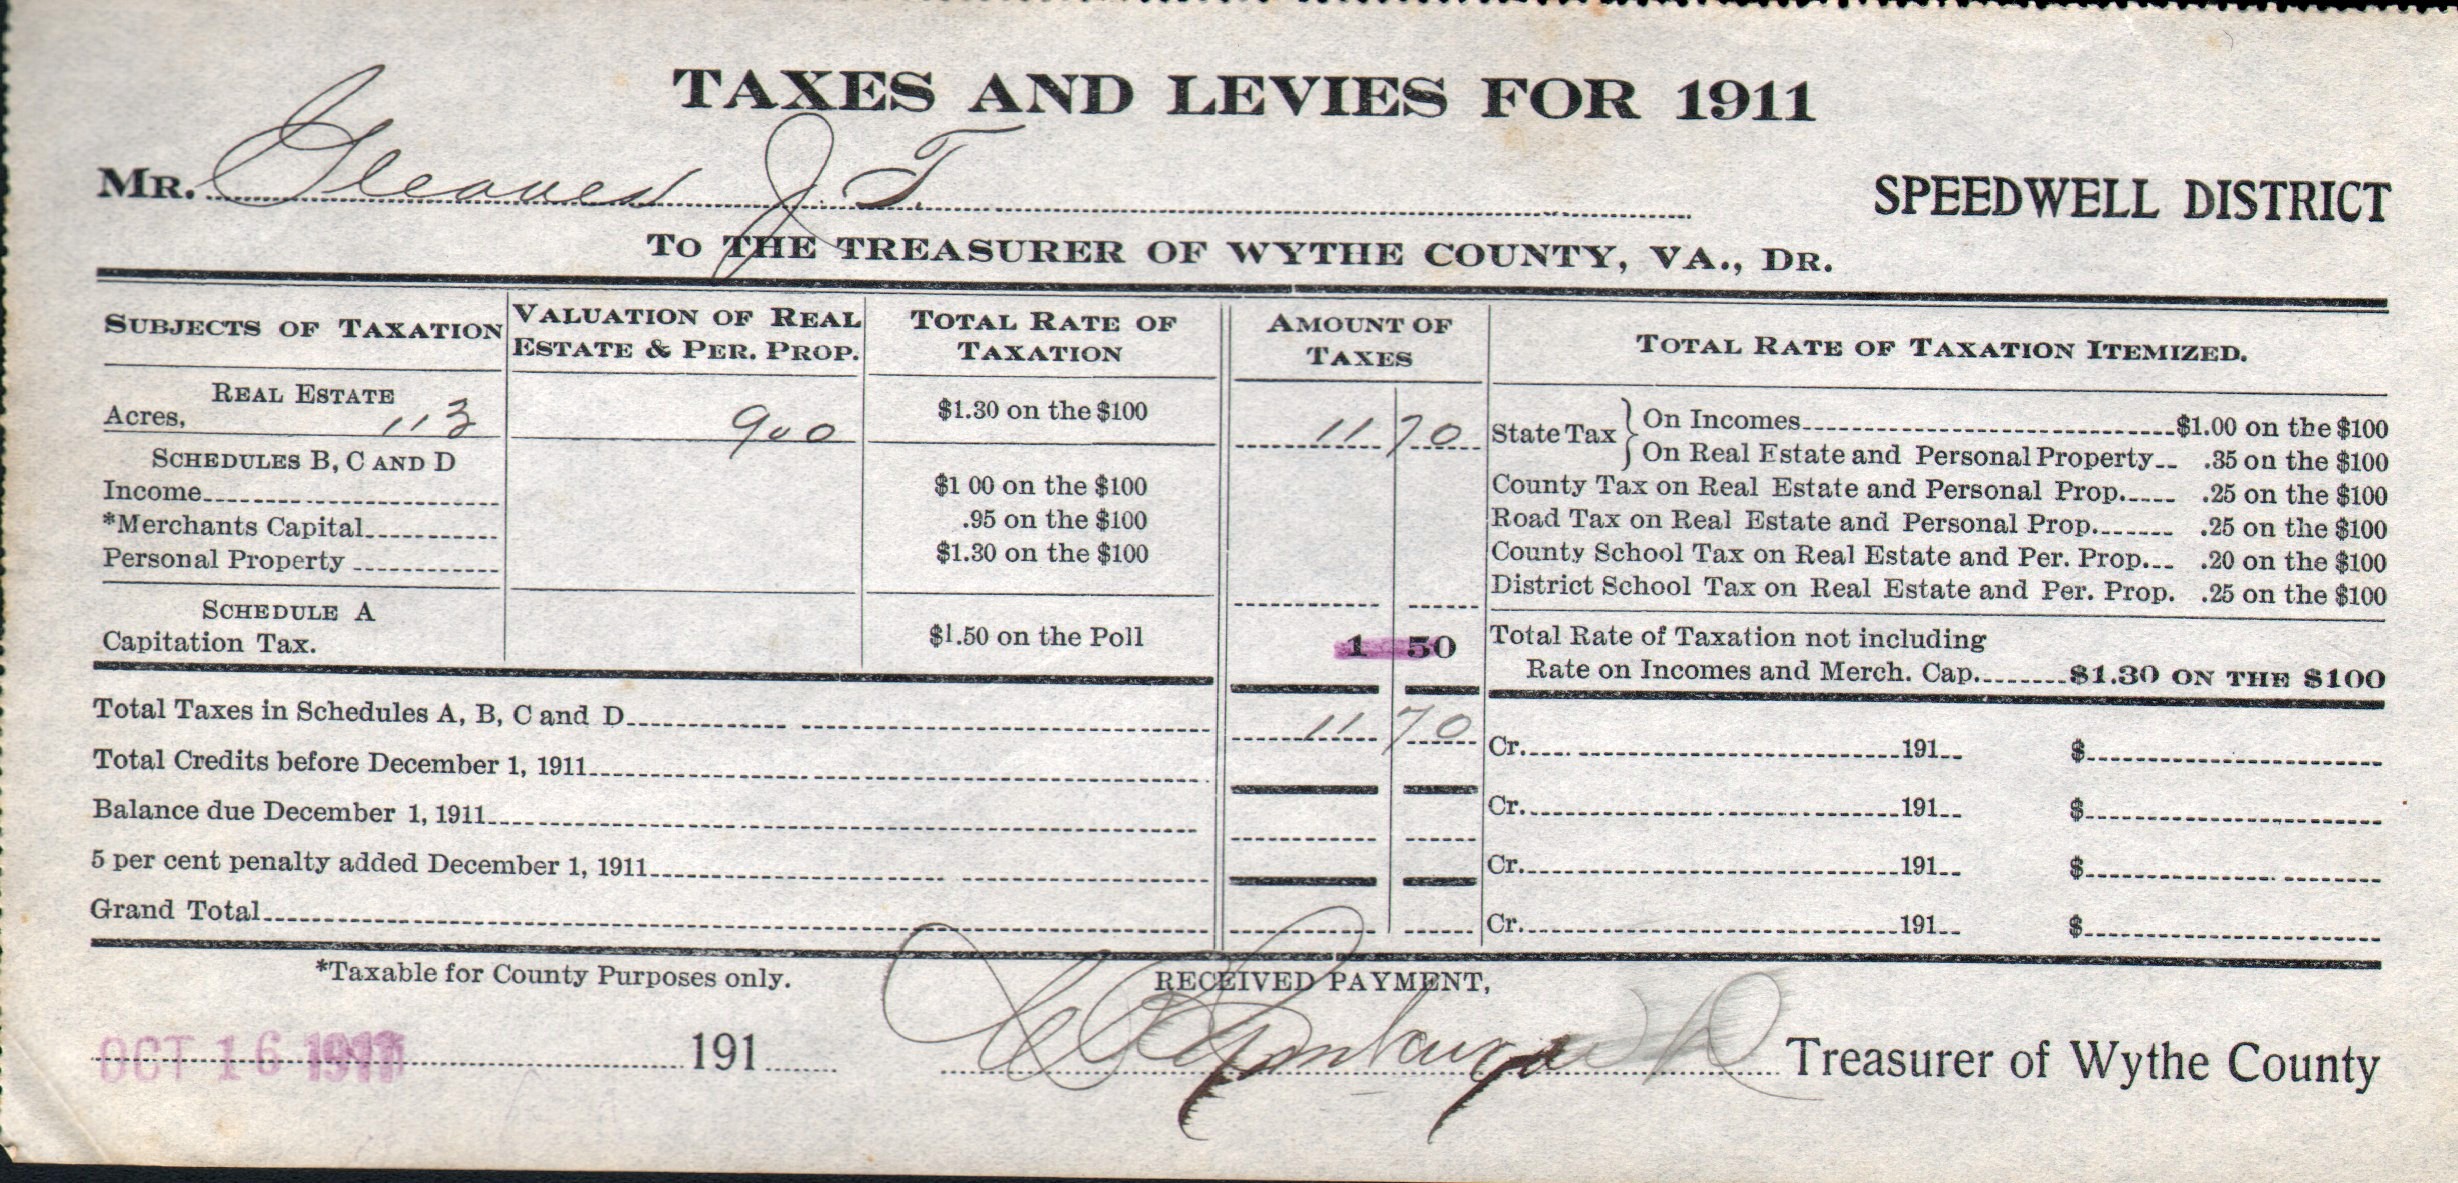 TAXES AND LEVIES FOR 1911
MR. Gleaves J. T.
SPEEDWELL DISTRICT
TO THE TREASURER OF WYTHE COUNTY, VA., DR.
SUBJECTS OF TAXATION
VALUATION OF REAL ESTATE & PER. PROP.
TOTAL RATE OF TAXATION
AMOUNT OF TAXES
TOTAL RATE OF TAXATION ITEMIZED.
REAL ESTATE
Acres, 113 900 $1.30 on the $100 11 70
SCHEDULES B, C AND D
Income $1 00 on the $100
*Merchants Capital .95 on the $100
Personal Property $1.30 on the $100
SCHEDULE A
Capitation Tax. $1.50 on the Poll 1 50
State Tax } On Incomes $1.00 on the $100
On Real Estate and Personal Property .35 on the $100
County Tax on Real Estate and Personal Prop. .25 on the $100
Road Tax on Real Estate and Personal Prop. .25 on the $100
County School Tax on Real Estate and Per. Prop. .20 on the $100
District School Tax on Real Estate and Per. Prop. .25 on the $100
Total Rate of Taxation not including
Rate on Incomes and Merch. Cap. $1.30 ON THE $100
Total Taxes in Schedules A, B, C and D 11 70
Total Credits before December 1, 1911
Balance due December 1, 1911
5 per cent penalty added December 1, 1911
Grand Total
Cr. 191 $
Cr. 191 $
Cr. 191 $
Cr. 191 $
*Taxable for County Purposes only.
RECEIVED PAYMENT,
OCT 16 1911 191
Treasurer of Wythe County